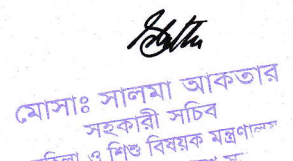 মোসাঃ সালমা আকতার
সহকারী সচিব
ও শিশু বিষয়ক মন্ত্রণালয়